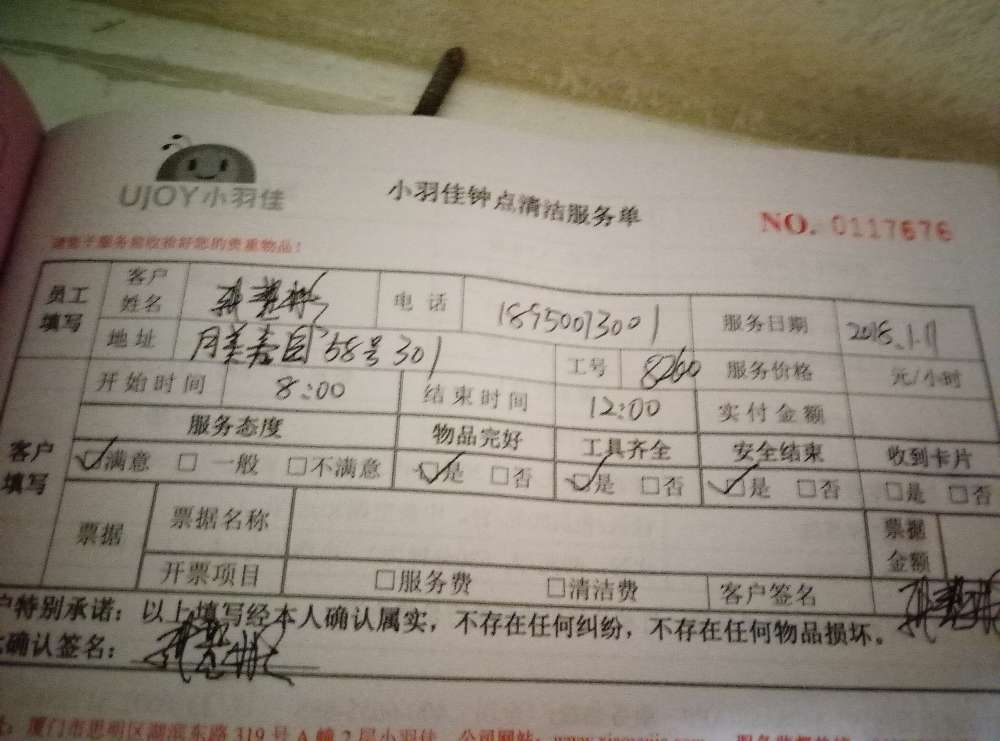 UJOY小羽佳
小羽佳钟点清洁服务单
NO. 0117676
请您于服务前收拾好您的贵重物品!
员工填写
客户姓名
电话 18950073001
服务日期 2018.1.11
地址 58号301
工号 8260
服务价格 元/小时
开始时间 8:00
结束时间 12:00
实付金额
客户填写
服务态度 物品完好 工具齐全 安全结束 收到卡片
☑满意 □一般 □不满意 ☑是 □否 ☑是 □否 ☑是 □否 □是 □否
票据
票据名称
票据金额
开票项目 □服务费 □清洁费 客户签名
户特别承诺：以上填写经本人确认属实，不存在任何纠纷，不存在任何物品损坏。
确认签名：
厦门市思明区湖滨东路319号A幢2层小羽佳 公司网站：